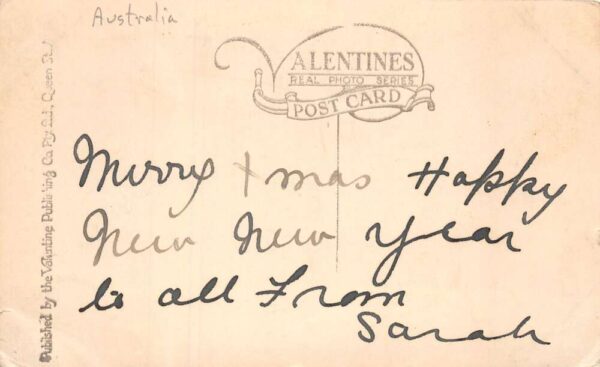 Australia
VALENTINES
REAL PHOTO SERIES
POST CARD
Published by the Valentine Publishing Co Pty. Ltd., Queen St.
Merry Xmas Happy
New New Year
to all From
Sarah